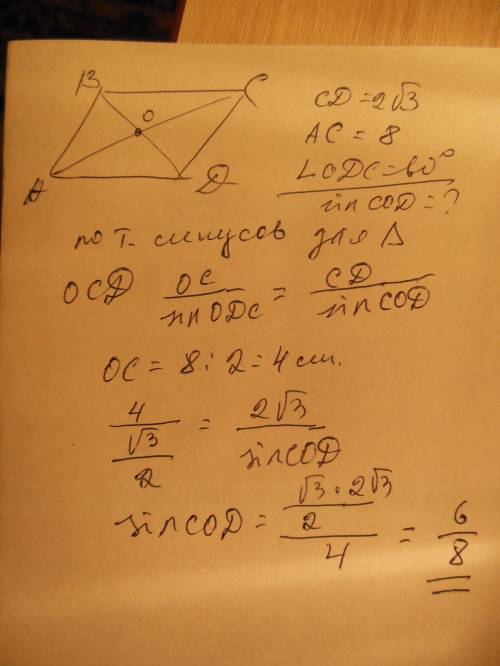 B C
O
A D
CD = 2√3
AC = 8
∠ODC = 60°
sin COD = ?
по т. синусов для Δ
OCD OC / sin ODC = CD / sin COD
OC = 8 : 2 = 4 см.
4 / (√3 / 2) = 2√3 / sin COD
sin COD = (√3 · 2√3 / 2) / 4 = 6 / 8